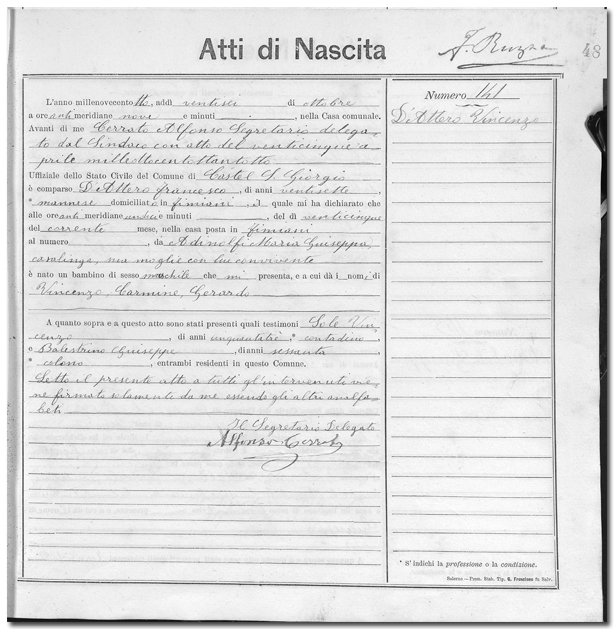 Atti di Nascita
48
Numero 141
Di Attero Vincenzo
L'anno millenovecento tto, addì ventisei di ottobre
a ore anti meridiane nove e minuti , nella Casa comunale.
Avanti di me Cerrato Alfonso Segretario delega-
to dal Sindaco con atto del venticinque a-
prile milleottocentottantotto
Uffiziale dello Stato Civile del Comune di Castel S. Giorgio
è comparso Di Attero Francesco, di anni ventisette,
* domiciliato in Fimiani, il quale mi ha dichiarato che
alle ore anti meridiane undici e minuti , del dì venticinque
del corrente mese, nella casa posta in Fimiani
al numero , da Adinolfi Maria Giuseppa,
casalinga, sua moglie con lui convivente
è nato un bambino di sesso maschile che mi presenta, e a cui dà i nomi di
Vincenzo, Carmine, Gerardo
A quanto sopra e a questo atto sono stati presenti quali testimoni Sole Vin-
cenzo, di anni cinquantatré, * contadino,
e Balestrino Giuseppe, di anni sessanta,
* colono, entrambi residenti in questo Comune.
Letto il presente atto a tutti gl'intervenuti vie-
ne firmato solamente da me essendo gli altri analfa-
beti
Il Segretario Delegato
Alfonso Cerrato
* S' indichi la professione o la condizione.